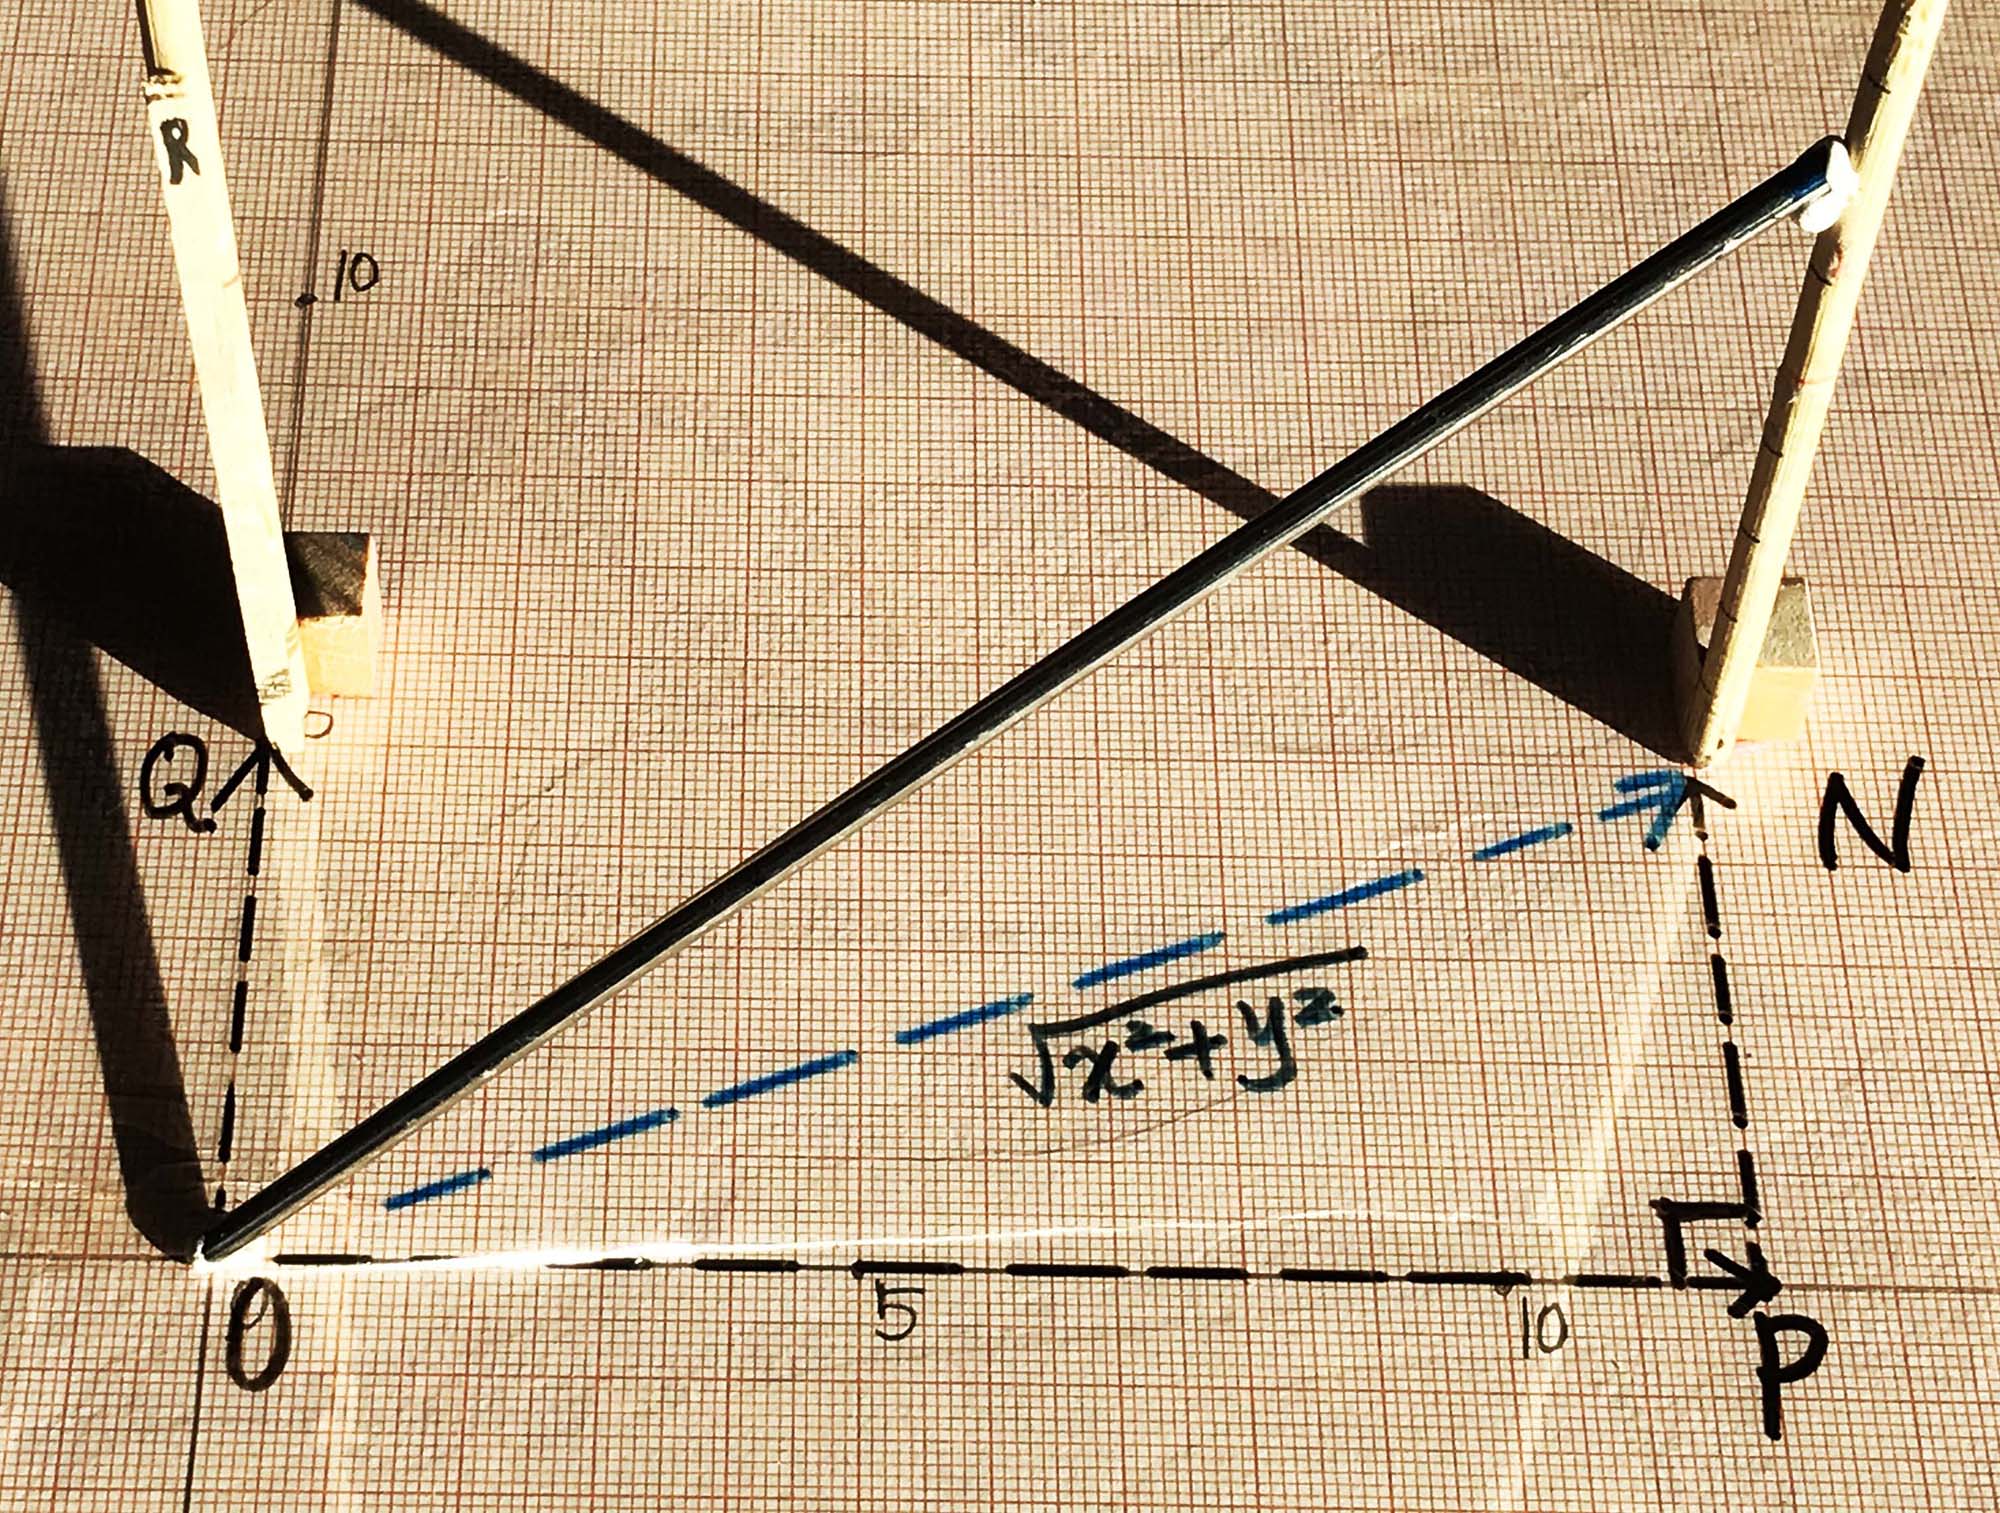 R
10
Q
N
√x²+y²
O
5
10
P